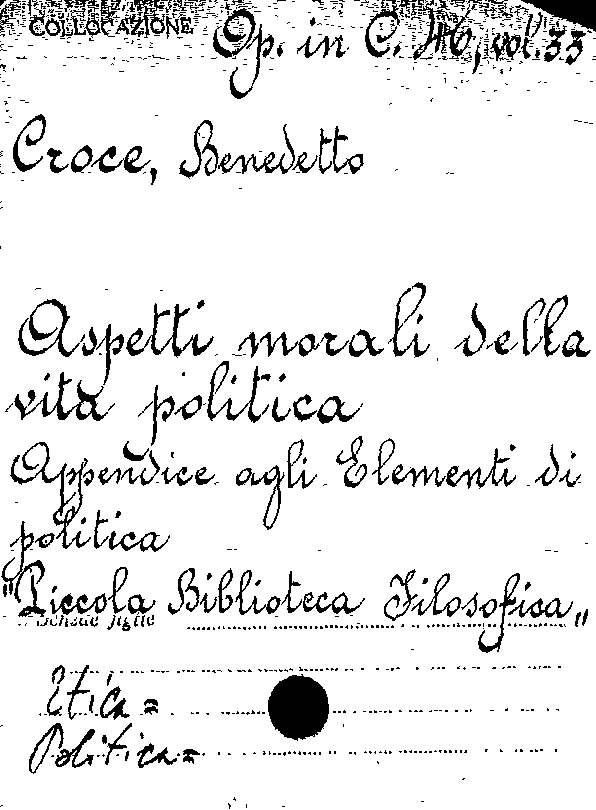 COLLOCAZIONE Op. in C. 46, vol. 33
Croce, Benedetto
Aspetti morali della
vita politica
Appendice agli Elementi di
politica
"Piccola Biblioteca Filosofica„
Etica =
Politica =